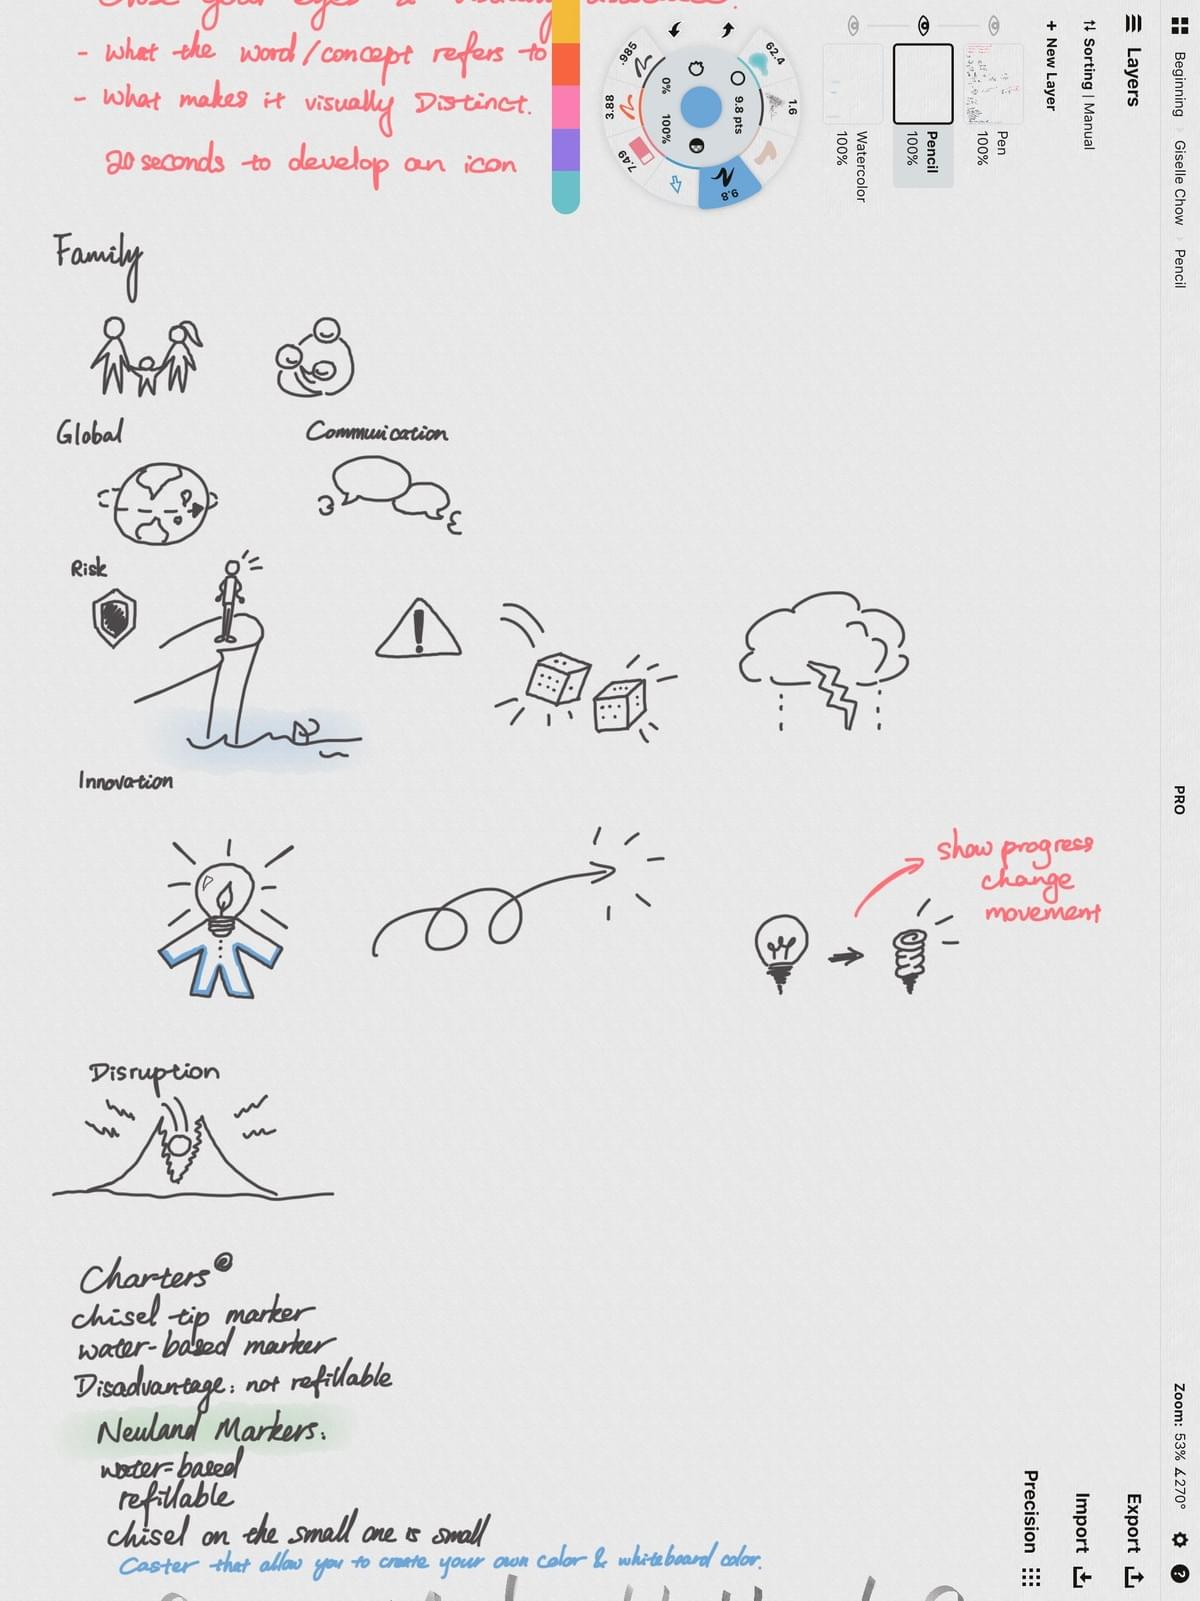 - What the word/concept refers to
- What makes it visually Distinct.
20 seconds to develop an icon
Family
Global
Commuication
Risk
Innovation
show progress
change
movement
Disruption
Charters
chisel tip marker
water-based marker
Disadvantage: not refillable
Neuland Markers:
water-based
refillable
chisel on the small one is small
Caster that allow you to create your own color & whiteboard color.
Beginning › Giselle Chow › Pencil
PRO
Zoom: 53% ∡270°
Layers
Sorting | Manual
+ New Layer
Pen
100%
Pencil
100%
Watercolor
100%
62.4
1.6
9.8
7.49
3.88
.985
9.8 pts
0%
100%
Export
Import
Precision